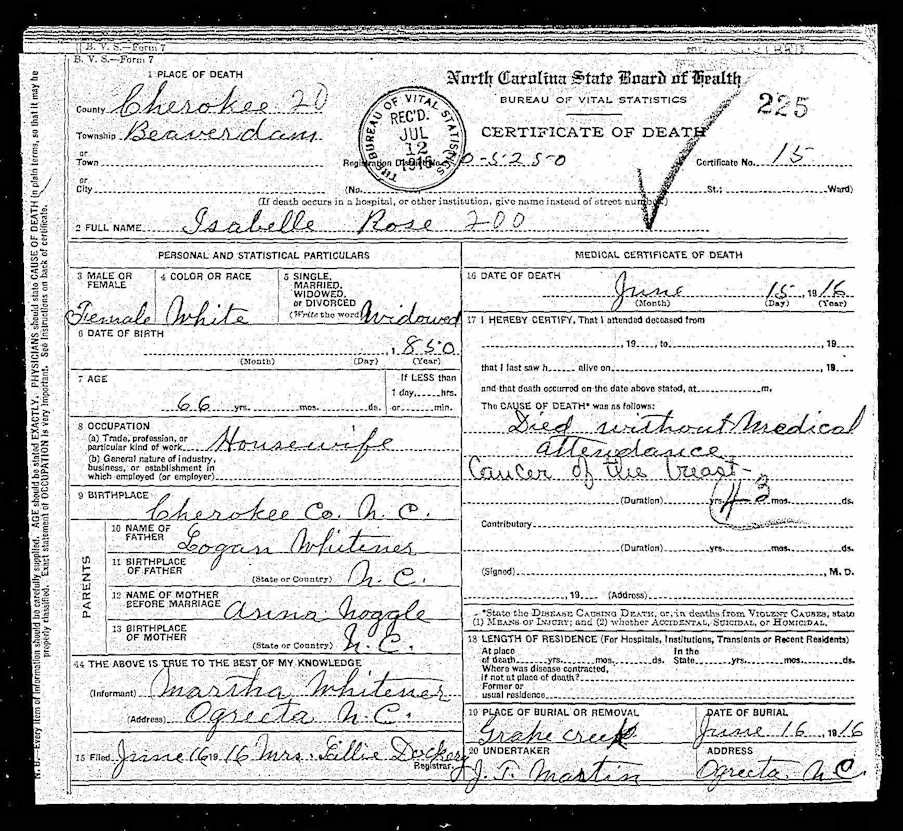 B. V. S.—Form 7
B. V. S.—Form 7
1 PLACE OF DEATH
County Cherokee 20
Township Beaverdam
or
Town
or
City
North Carolina State Board of Health
BUREAU OF VITAL STATISTICS
225
CERTIFICATE OF DEATH
THE BUREAU OF VITAL STATISTICS
REC'D.
JUL
12
1916
Registration District No. 0-5250 Certificate No. 15
(No. St.; Ward)
(If death occurs in a hospital, or other institution, give name instead of street number)
2 FULL NAME Isabelle Rose 200
PERSONAL AND STATISTICAL PARTICULARS
3 MALE OR FEMALE
Female
4 COLOR OR RACE
White
5 SINGLE,
MARRIED,
WIDOWED,
or DIVORCED
(Write the word) Widowed
6 DATE OF BIRTH
, 1850
(Month) (Day) (Year)
7 AGE
66 yrs. mos. ds.
If LESS than
1 day, hrs.
or min.
8 OCCUPATION
(a) Trade, profession, or
particular kind of work Housewife
(b) General nature of industry,
business, or establishment in
which employed (or employer)
9 BIRTHPLACE
Cherokee Co. N. C.
PARENTS
10 NAME OF
FATHER Logan Whitener
11 BIRTHPLACE
OF FATHER
(State or Country) N. C.
12 NAME OF MOTHER
BEFORE MARRIAGE Noggle
13 BIRTHPLACE
OF MOTHER
(State or Country) N. C.
14 THE ABOVE IS TRUE TO THE BEST OF MY KNOWLEDGE
(Informant) Martha Whitener
(Address) Ogreeta N. C.
15 Filed June 16 1916 Mrs. Lillie Dockery
Registrar.
MEDICAL CERTIFICATE OF DEATH
16 DATE OF DEATH
June 15, 1916
(Month) (Day) (Year)
17 I HEREBY CERTIFY, That I attended deceased from
, 19 , to , 19
that I last saw h alive on , 19
and that death occurred on the date above stated, at m.
The CAUSE OF DEATH* was as follows:
Died without Medical
attendance
Cancer of the breast
43
(Duration) yrs. mos. ds.
Contributory
(Duration) yrs. mos. ds.
(Signed) , M. D.
, 19 (Address)
*State the DISEASE CAUSING DEATH, or, in deaths from VIOLENT CAUSES, state
(1) MEANS OF INJURY; and (2) whether ACCIDENTAL, SUICIDAL, or HOMICIDAL.
18 LENGTH OF RESIDENCE (For Hospitals, Institutions, Transients or Recent Residents)
At place
of death yrs. mos. ds.
In the
State yrs. mos. ds.
Where was disease contracted,
if not at place of death?
Former or
usual residence
19 PLACE OF BURIAL OR REMOVAL
Grape creek
DATE OF BURIAL
June 16, 1916
20 UNDERTAKER
J. T. Martin
ADDRESS
Ogreeta N. C.
N. B.—Every item of information should be carefully supplied. AGE should be stated EXACTLY. PHYSICIANS should state CAUSE OF DEATH in plain terms, so that it may be
properly classified. Exact statement of OCCUPATION is very important. See instructions on back of certificate.